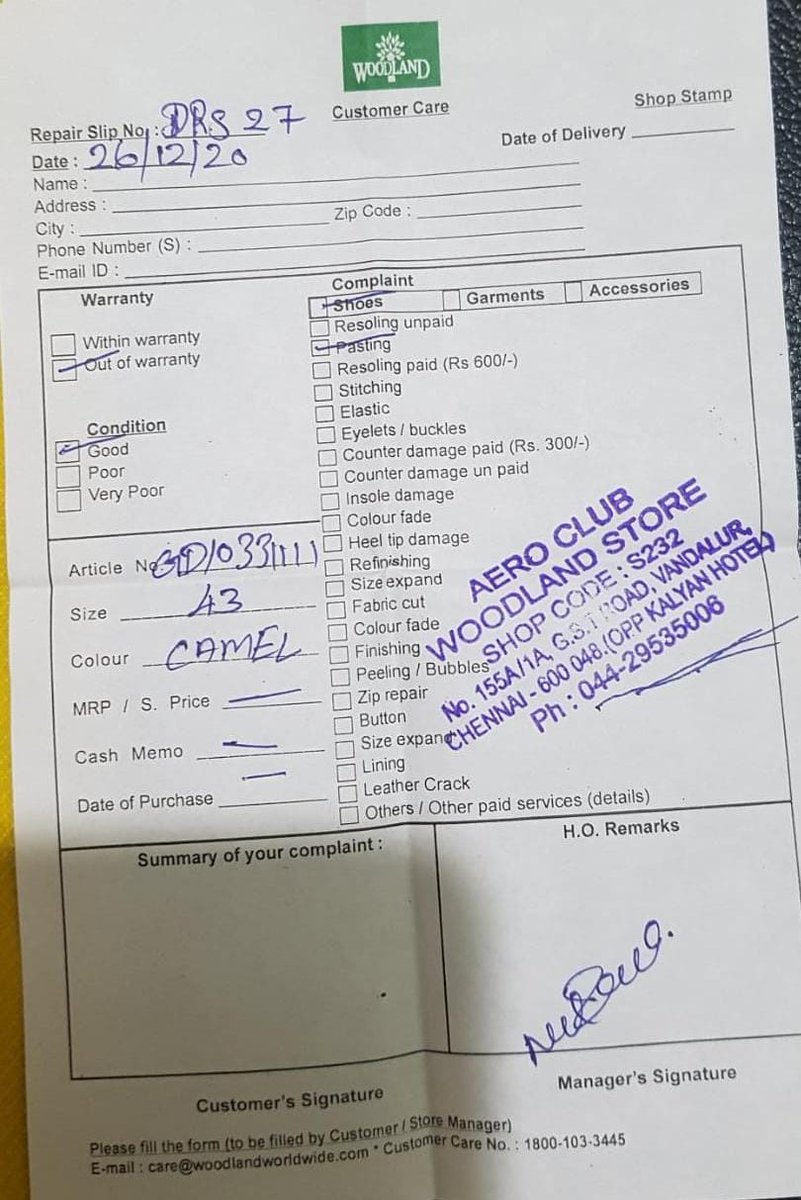 WOODLAND
Customer Care
Shop Stamp
Repair Slip No. : DRS 27
Date of Delivery
Date : 26/12/20
Name :
Address :
City :
Zip Code :
Phone Number (S) :
E-mail ID :
Warranty
Within warranty
Out of warranty
Condition
Good
Poor
Very Poor
Article No
Size 43
Colour CAMEL
MRP / S. Price
Cash Memo
Date of Purchase
Complaint
Shoes Garments Accessories
Resoling unpaid
Pasting
Resoling paid (Rs 600/-)
Stitching
Elastic
Eyelets / buckles
Counter damage paid (Rs. 300/-)
Counter damage un paid
Insole damage
Colour fade
Heel tip damage
Refinishing
Size expand
Fabric cut
Colour fade
Finishing
Peeling / Bubbles
Zip repair
Button
Size expand
Lining
Leather Crack
Others / Other paid services (details)
AERO CLUB
WOODLAND STORE
SHOP CODE : S232
No. 155A/1A, G.S.T ROAD, VANDALUR,
CHENNAI - 600 048.(OPP KALYAN HOTEL)
Ph : 044-29535006
Summary of your complaint :
H.O. Remarks
Customer's Signature
Manager's Signature
Please fill the form (to be filled by Customer / Store Manager)
E-mail : care@woodlandworldwide.com * Customer Care No. : 1800-103-3445